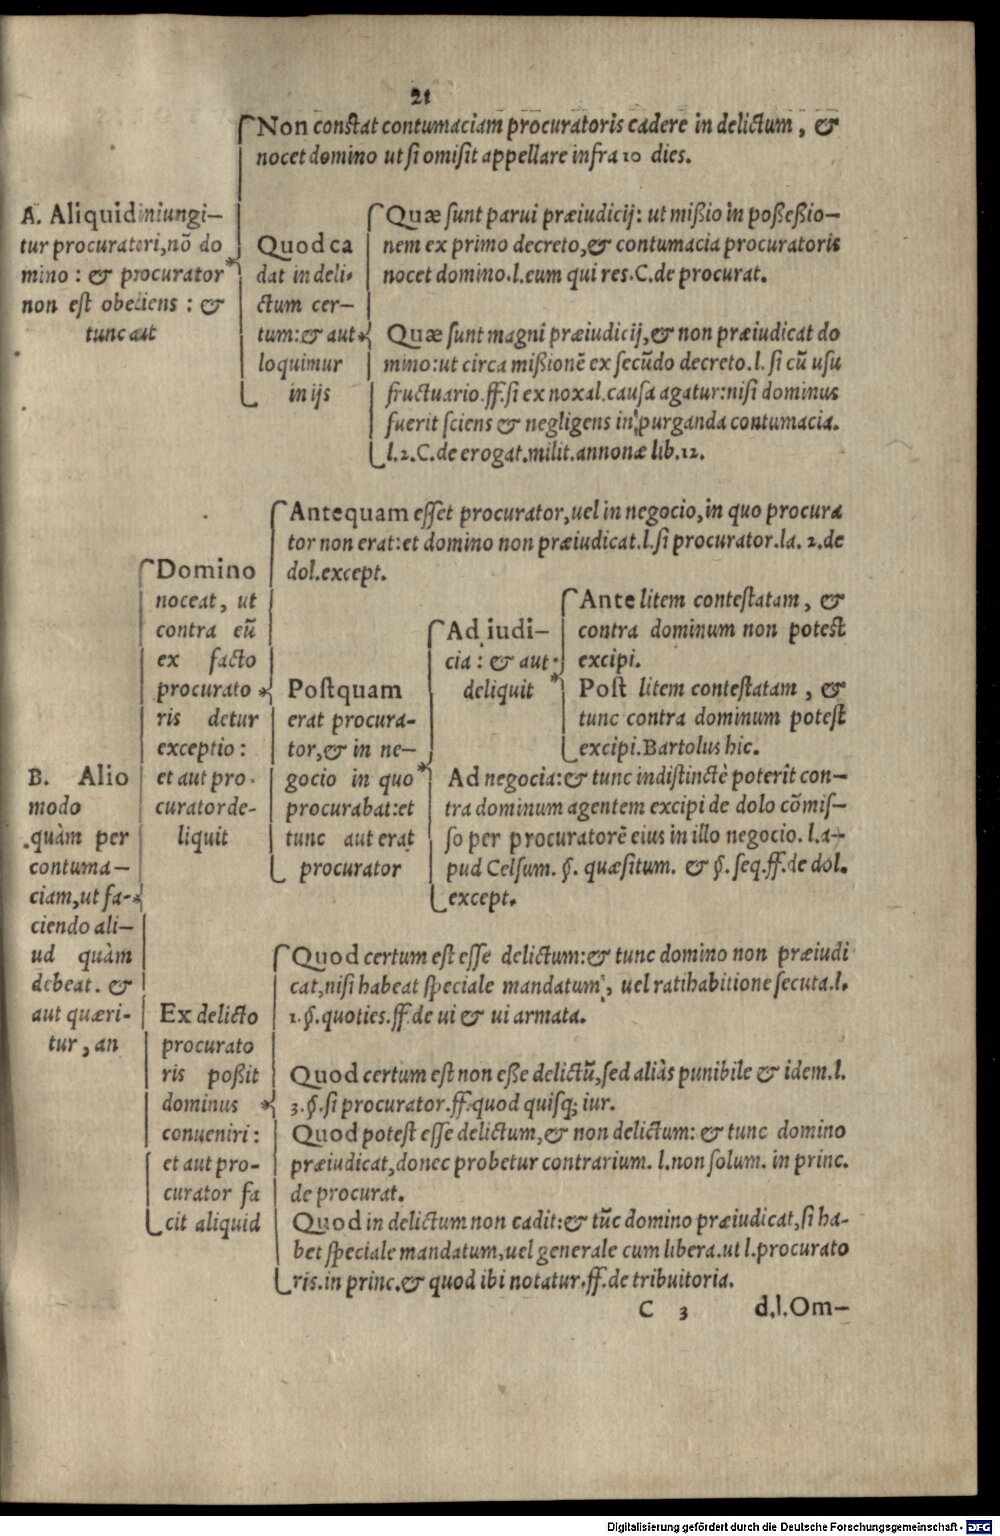 21
Non constat contumaciam procuratoris cadere in delictum, &
nocet domino ut si omisit appellare infra 10 dies.
A. Aliquid iniungi-
tur procuratori, nō do
mino: & procurator
non est obediens: &
tunc aut
Quod ca
dat in deli-
ctum cer-
tum: & aut
loquimur
in ijs
Quæ sunt parui præiudicij: ut mißio in poßeßio-
nem ex primo decreto, & contumacia procuratoris
nocet domino. l. eum qui res. C. de procurat.
Quæ sunt magni præiudicij, & non præiudicat do
mino: ut circa mißionē ex secūdo decreto. l. si cū usu
fructuario. ff. si ex noxal. causa agatur: nisi dominus
fuerit sciens & negligens in purganda contumacia.
l. 2. C. de erogat. milit. annonæ lib. 12.
B. Alio
modo
quàm per
contuma-
ciam, ut fa-
ciendo ali-
ud quàm
debeat. &
aut quæri-
tur, an
Domino
noceat, ut
contra eū
ex facto
procurato
ris detur
exceptio:
et aut pro-
curator de-
liquit
Antequam esset procurator, uel in negocio, in quo procura
tor non erat: et domino non præiudicat. l. si procurator. la. 2. de
dol. except.
Postquam
erat procura-
tor, & in ne-
gocio in quo
procurabat: et
tunc aut erat
procurator
Ad iudi-
cia: & aut
deliquit
Ante litem contestatam, &
contra dominum non potest
excipi.
Post litem contestatam, &
tunc contra dominum potest
excipi. Bartolus hic.
Ad negocia: & tunc indistinctè poterit con-
tra dominum agentem excipi de dolo cōmis-
so per procuratorē eius in illo negocio. l. a-
pud Celsum. §. quæsitum. & §. seq. ff. de dol.
except.
Ex delicto
procurato
ris poßit
dominus
conueniri:
et aut pro-
curator fa
cit aliquid
Quod certum est esse delictum: & tunc domino non præiudi
cat, nisi habeat speciale mandatum, uel ratihabitione secuta. l.
1. §. quoties. ff. de ui & ui armata.
Quod certum est non eße delictū, sed aliàs punibile & idem. l.
3. §. si procurator. ff. quod quisq; iur.
Quod potest esse delictum, & non delictum: & tunc domino
præiudicat, donec probetur contrarium. l. non solum. in princ.
de procurat.
Quod in delictum non cadit: & tūc domino præiudicat, si ha-
bet speciale mandatum, uel generale cum libera. ut l. procurato
ris. in princ. & quod ibi notatur. ff. de tribuitoria.
C 3 d. l. Om-
Digitalisierung gefördert durch die Deutsche Forschungsgemeinschaft - DFG